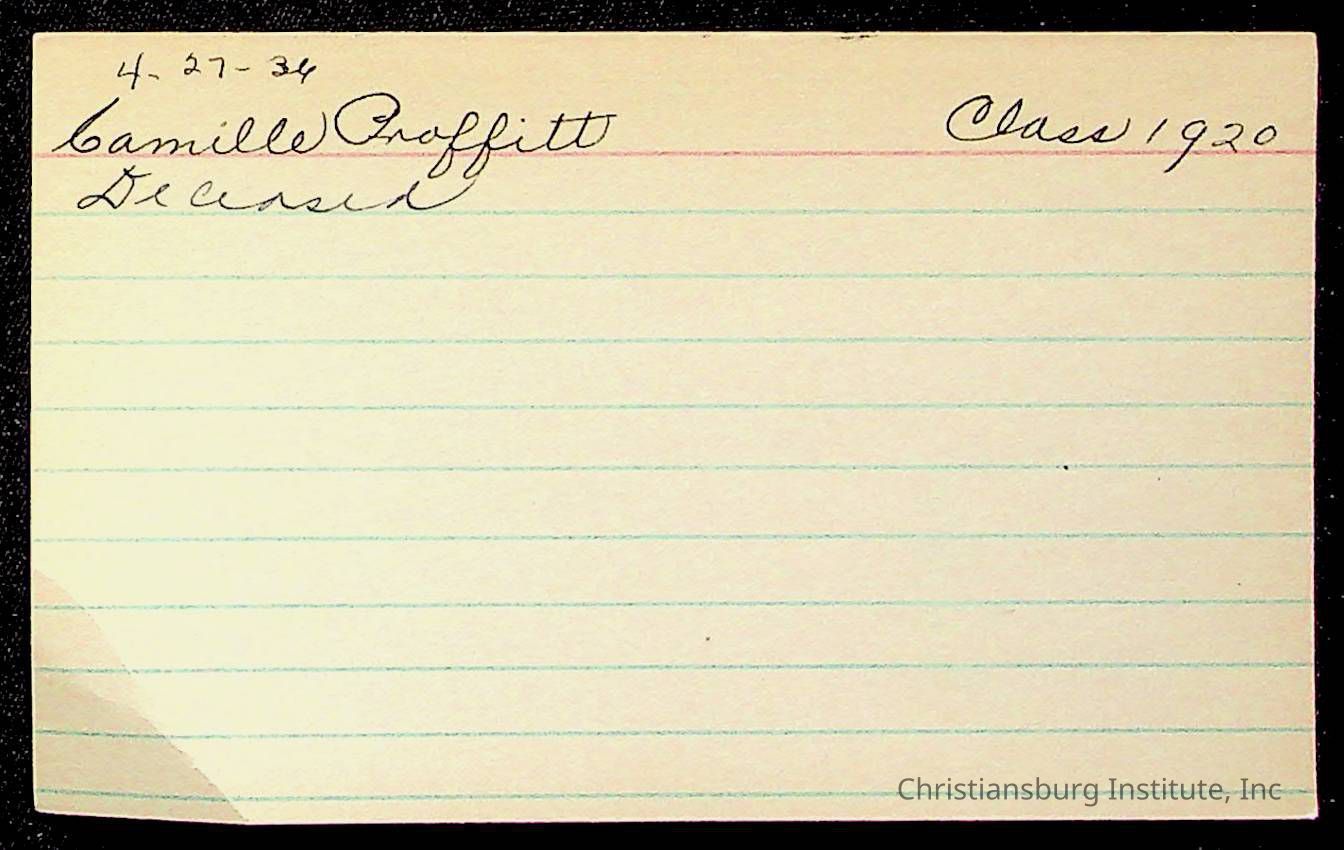 4-27-36
Camille Proffitt Class 1920
Deceased
Christiansburg Institute, Inc